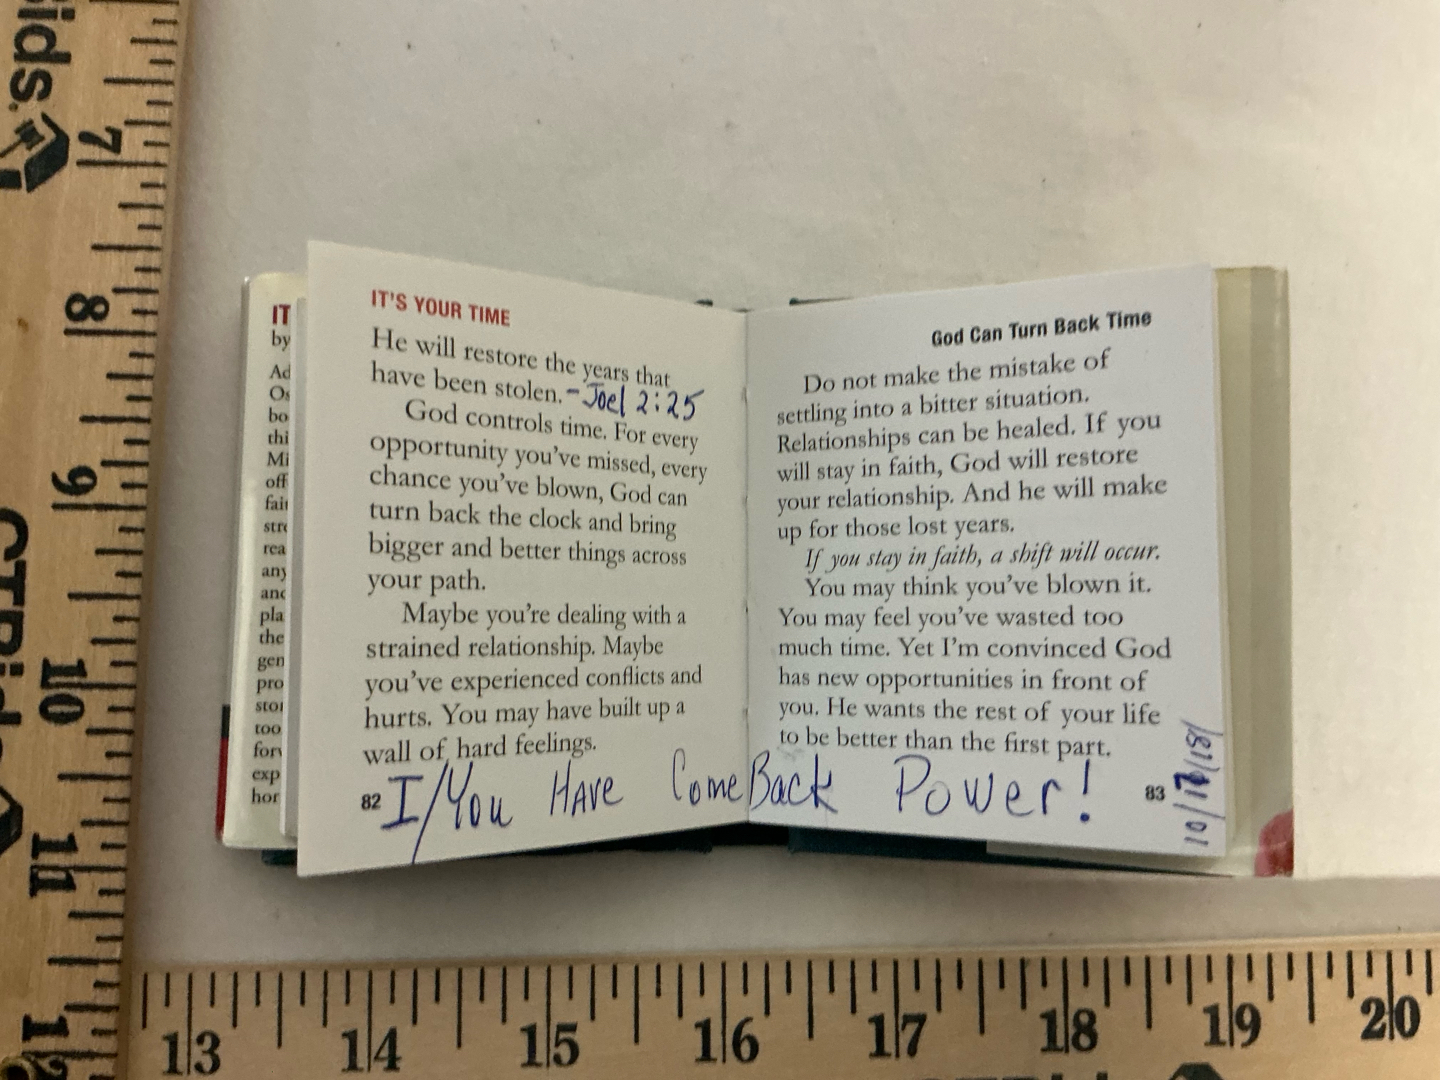 IT'S YOUR TIME
He will restore the years that
have been stolen. - Joel 2:25
God controls time. For every
opportunity you've missed, every
chance you've blown, God can
turn back the clock and bring
bigger and better things across
your path.
Maybe you're dealing with a
strained relationship. Maybe
you've experienced conflicts and
hurts. You may have built up a
wall of hard feelings.
82
God Can Turn Back Time
Do not make the mistake of
settling into a bitter situation.
Relationships can be healed. If you
will stay in faith, God will restore
your relationship. And he will make
up for those lost years.
If you stay in faith, a shift will occur.
You may think you've blown it.
You may feel you've wasted too
much time. Yet I'm convinced God
has new opportunities in front of
you. He wants the rest of your life
to be better than the first part.
83
I/You HAVE ComeBack Power!
IT
by
Ad
Os
bo
thi
Mi
off
fait
stre
rea
any
and
pla
the
gen
pro
stor
too
forv
exp
hor
7
8
9
10
11
12
13
14
15
16
17
18
19
20